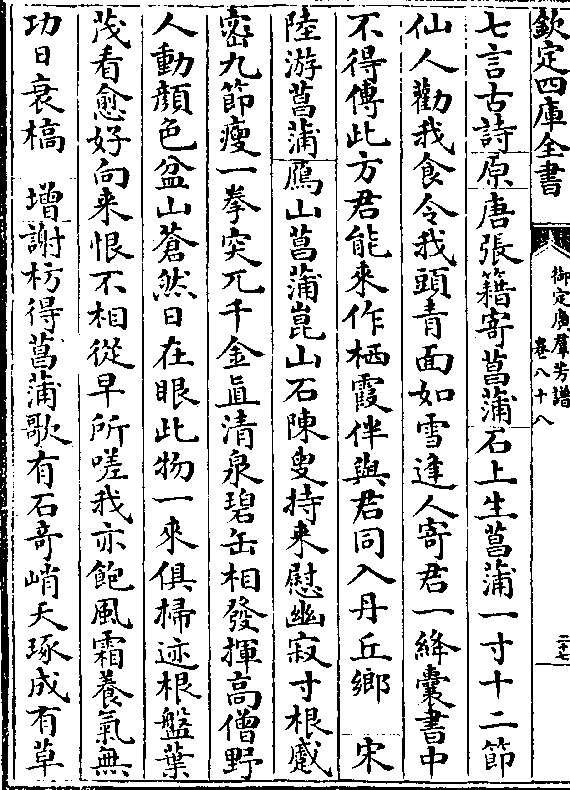 欽定四庫全書
御定廣羣芳譜
卷八十八
七言古詩原唐張籍寄菖蒲石上生菖蒲一寸十二節
仙人勸我食令我頭青面如雪逢人寄君一絳囊書中
不得傳此方君能來作栖霞伴與君同入丹丘鄉　宋
陸游菖蒲鴈山菖蒲崑山石陳叟持來慰幽寂寸根蹙
密九節瘦一拳突兀千金直清泉碧缶相發揮高僧野
人動顏色盆山蒼然日在眼此物一來俱掃迹根盤葉
茂看愈好向來恨不相從早所嗟我亦飽風霜養氣無
功日衰槁　增謝枋得菖蒲歌有石奇峭天琢成有草